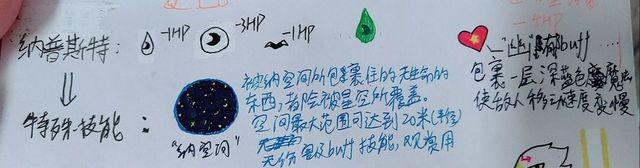 纳普斯特: -1HP -3HP -1HP
-4HP
"幽"buff
包裹一层深蓝色魔
使敌人移动速度变慢
特殊技能:
"纳空间"
被纳空间所包裹住的无生命的
东西,都会被星空所覆盖。
空间最大范围可达到20米(半径)
无伤害及buff技能,观赏用